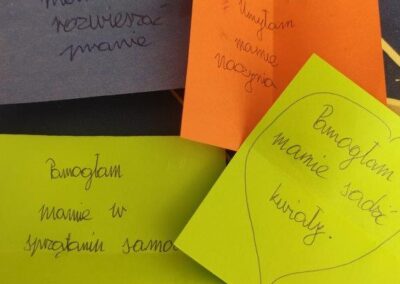 rozwieszać
pranie
Umyłam
mamie
naczynia
Pomogłam
mamie w
sprzątaniu
Pomogłam
mamie sadzić
kwiaty.